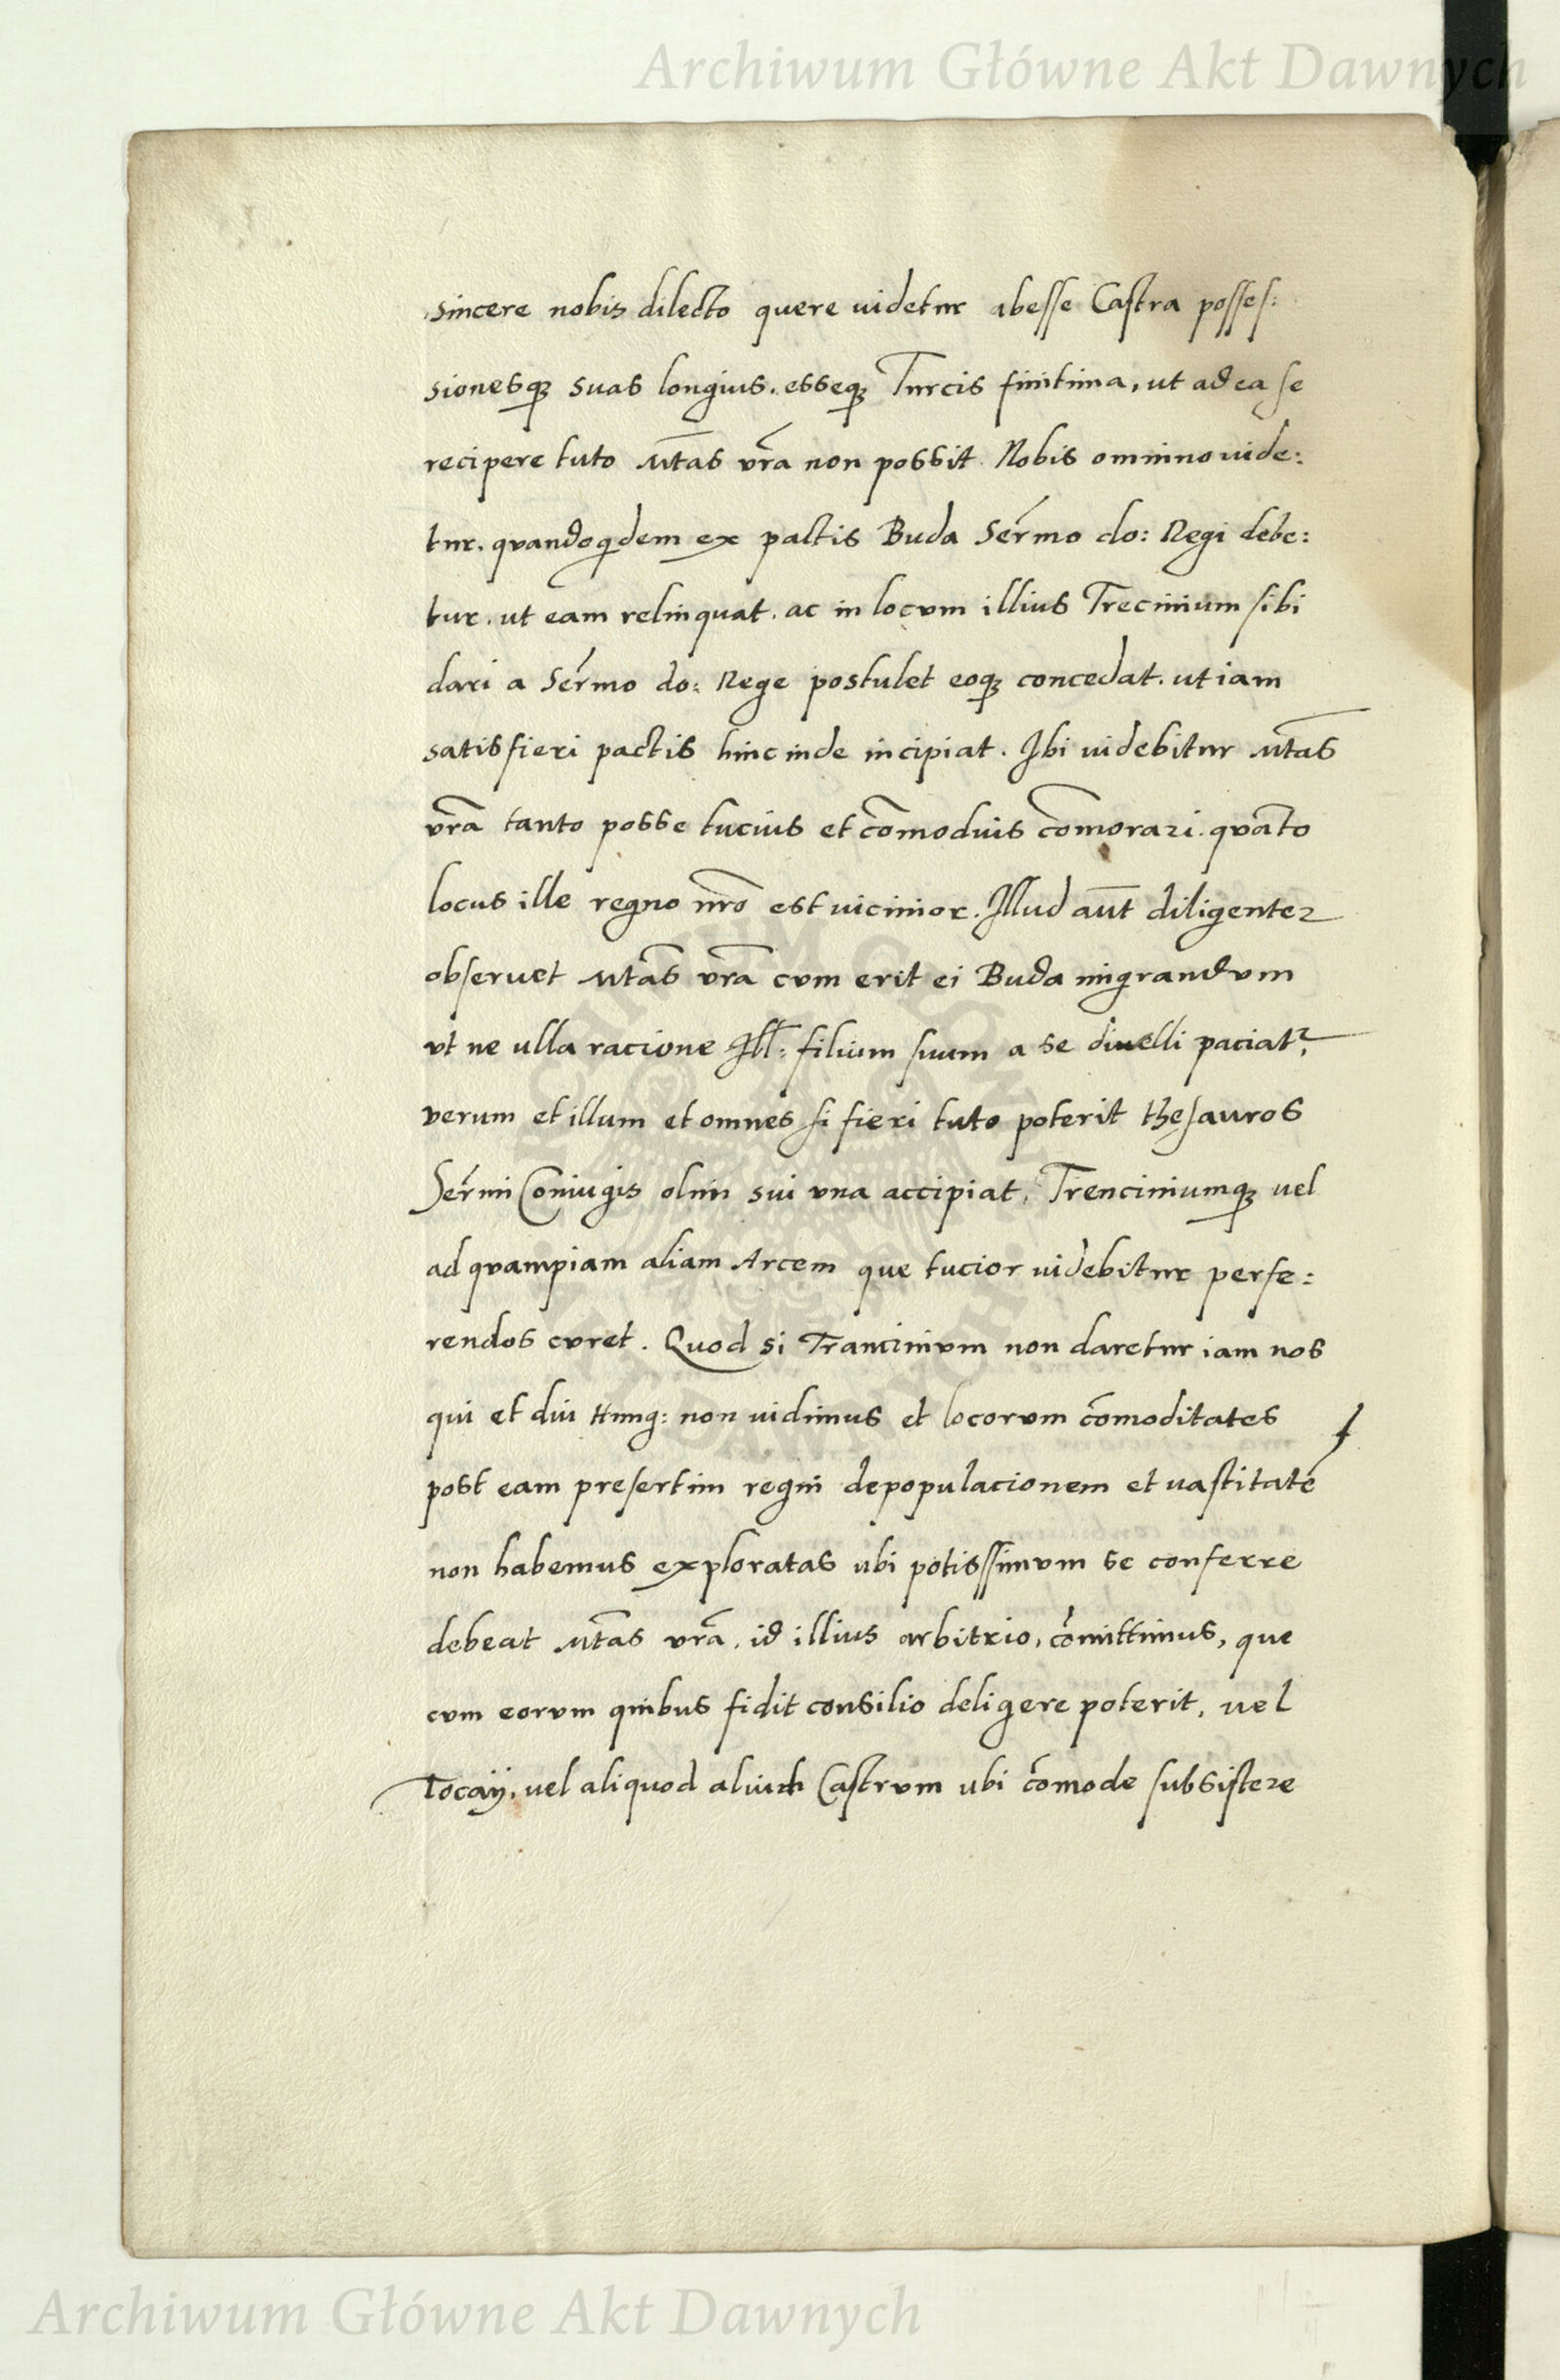 Archiwum Główne Akt Dawnych
sincere nobis dilecto quere uidetur abesse Castra posses:
sionesq₃ suas longius. esseq₃ Turcis finitima, ut ad ea se
recipere tuto Mtas vra non possit. Nobis omnino uide:
tur. quandoqdem ex pactis Buda Sermo do: Regi debe:
tur. ut eam relinquat. ac in locum illius Trecinium sibi
dari a Sermo do: Rege postulet eoq₃ concedat. ut iam
satisfieri pactis hinc inde incipiat. Ibi uidebitur Mtas
vra tanto posse tucius et cōmodius cōmorari. quāto
locus ille regno nro est uicinior. Illud aut diligenter
obseruet Mtas vra cum erit ei Buda migrandum
vt ne ulla racione Ill: filium suum a se diuelli paciatr
verum et illum et omnes si fieri tuto poterit thesauros
Sermi Coniugis olim sui vna accipiat, Trenciniumq₃ vel
ad quampiam aliam Arcem que tucior uidebitur perfe:
rendos curet. Quod si Trancinium non daretur iam nos
qui et diu Hung: non uidimus et locorum cōmoditates
post eam presertim regni depopulacionem et uastitatē
non habemus exploratas ubi potissimum se conferre
debeat Mtas vra. id illius arbitrio, cōmittimus, que
cum eorum quibus fidit consilio deligere poterit, vel
Tocaÿ, uel aliquod aliud Castrum ubi cōmode subsistere
Archiwum Główne Akt Dawnych